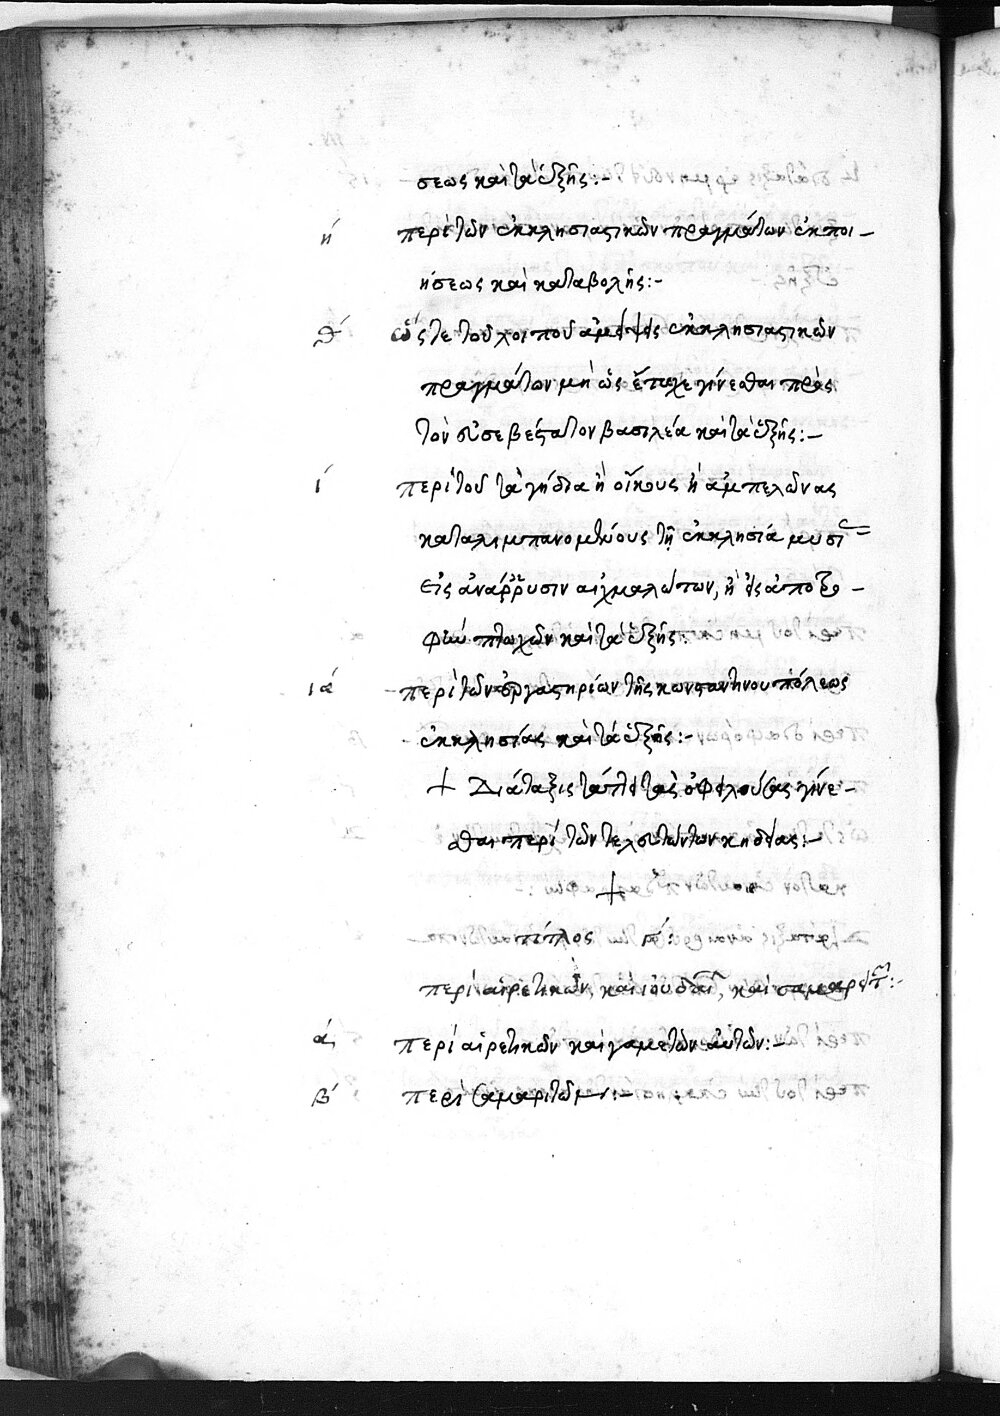 σεως καὶ τὰ ἑξῆς:-
ή περὶ τῶν ἐκκλησιαστικῶν πραγμάτων ἐκποι-
ήσεως καὶ καταβολῆς:-
θ´ ὥστε τοῦ λοιποῦ ἀμείψεις ἐκκλησιαστικῶν
πραγμάτων μὴ ὡς ἔτυχε γίνεσθαι πρὸς
τὸν εὐσεβέστατον βασιλέα καὶ τὰ ἑξῆς:-
ί περὶ τοῦ τὰ γήδια ἢ οἴκους ἢ ἀμπελῶνας
καταλιμπανομένους τῇ ἐκκλησία
εἰς ἀνάρρυσιν αἰχμαλώτων, ἢ εἰς ἀποτρο-
φὴν πτωχῶν καὶ τὰ ἑξῆς:-
ιά περὶ τῶν ἐργαστηρίων τῆς κωνσταντινουπόλεως
ἐκκλησίας καὶ τὰ ἑξῆς:-
+ Διάταξις τύπους τὰς ὀφειλούσας γίνε-
σθαι περὶ τῶν τελευτώντων κηδείας:-
+
τίτλος γ´:
περὶ αἱρετικῶν, καὶ ἰουδαί, καὶ σαμαρειτ:-
ά περὶ αἱρετικῶν καὶ γαμετῶν αὐτῶν:-
β´ περὶ σαμαριτῶν:-